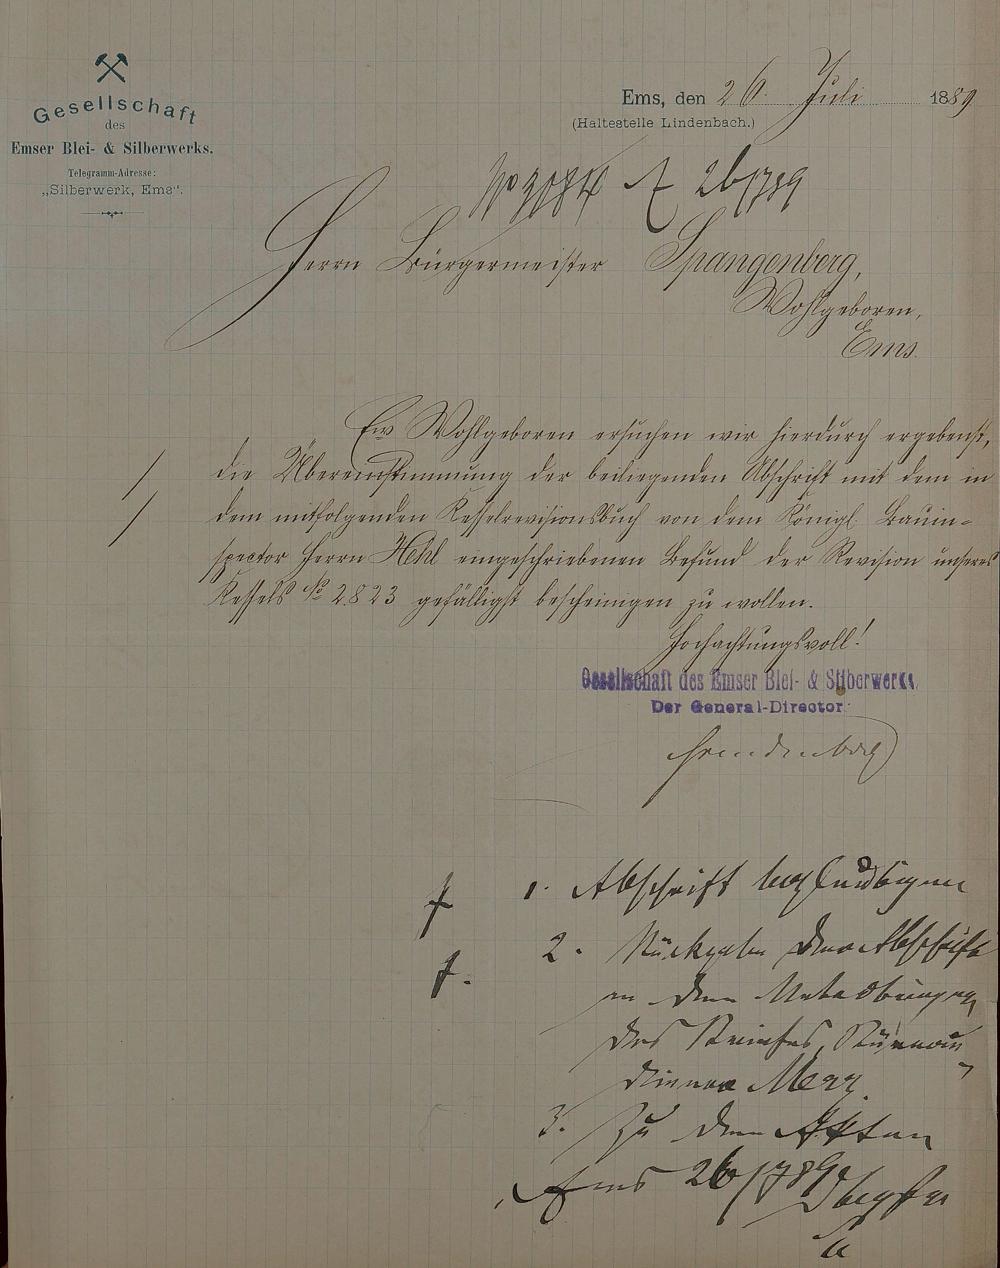 Gesellschaft
des
Emser Blei- & Silberwerks.
Telegramm-Adresse:
„Silberwerk, Ems“.
Ems, den 26. Juli 1889
(Haltestelle Lindenbach.)
26/7 89
Herrn Bürgermeister Spangenberg,
Wohlgeboren,
Ems.
Ew Wohlgeboren ersuchen wir hierdurch ergebenst,
die Übereinstimmung der beiliegenden Abschrift mit dem in
dem mitfolgenden Kesselrevisionsbuch von dem Königl. Bauin-
spector Herrn Hehl eingeschriebenen Befund der Revision unseres
Kessels No 2823 gefälligst bescheinigen zu wollen.
Hochachtungsvoll!
Gesellschaft des Emser Blei- & Silberwerks.
Der General-Director
1. Abschrift beglaubigen
2. Rückgabe der Abschrift
an den Ueberbringer
des Briefes,
diener Merz.
3. Zu den Akten
Ems 26/7 89.